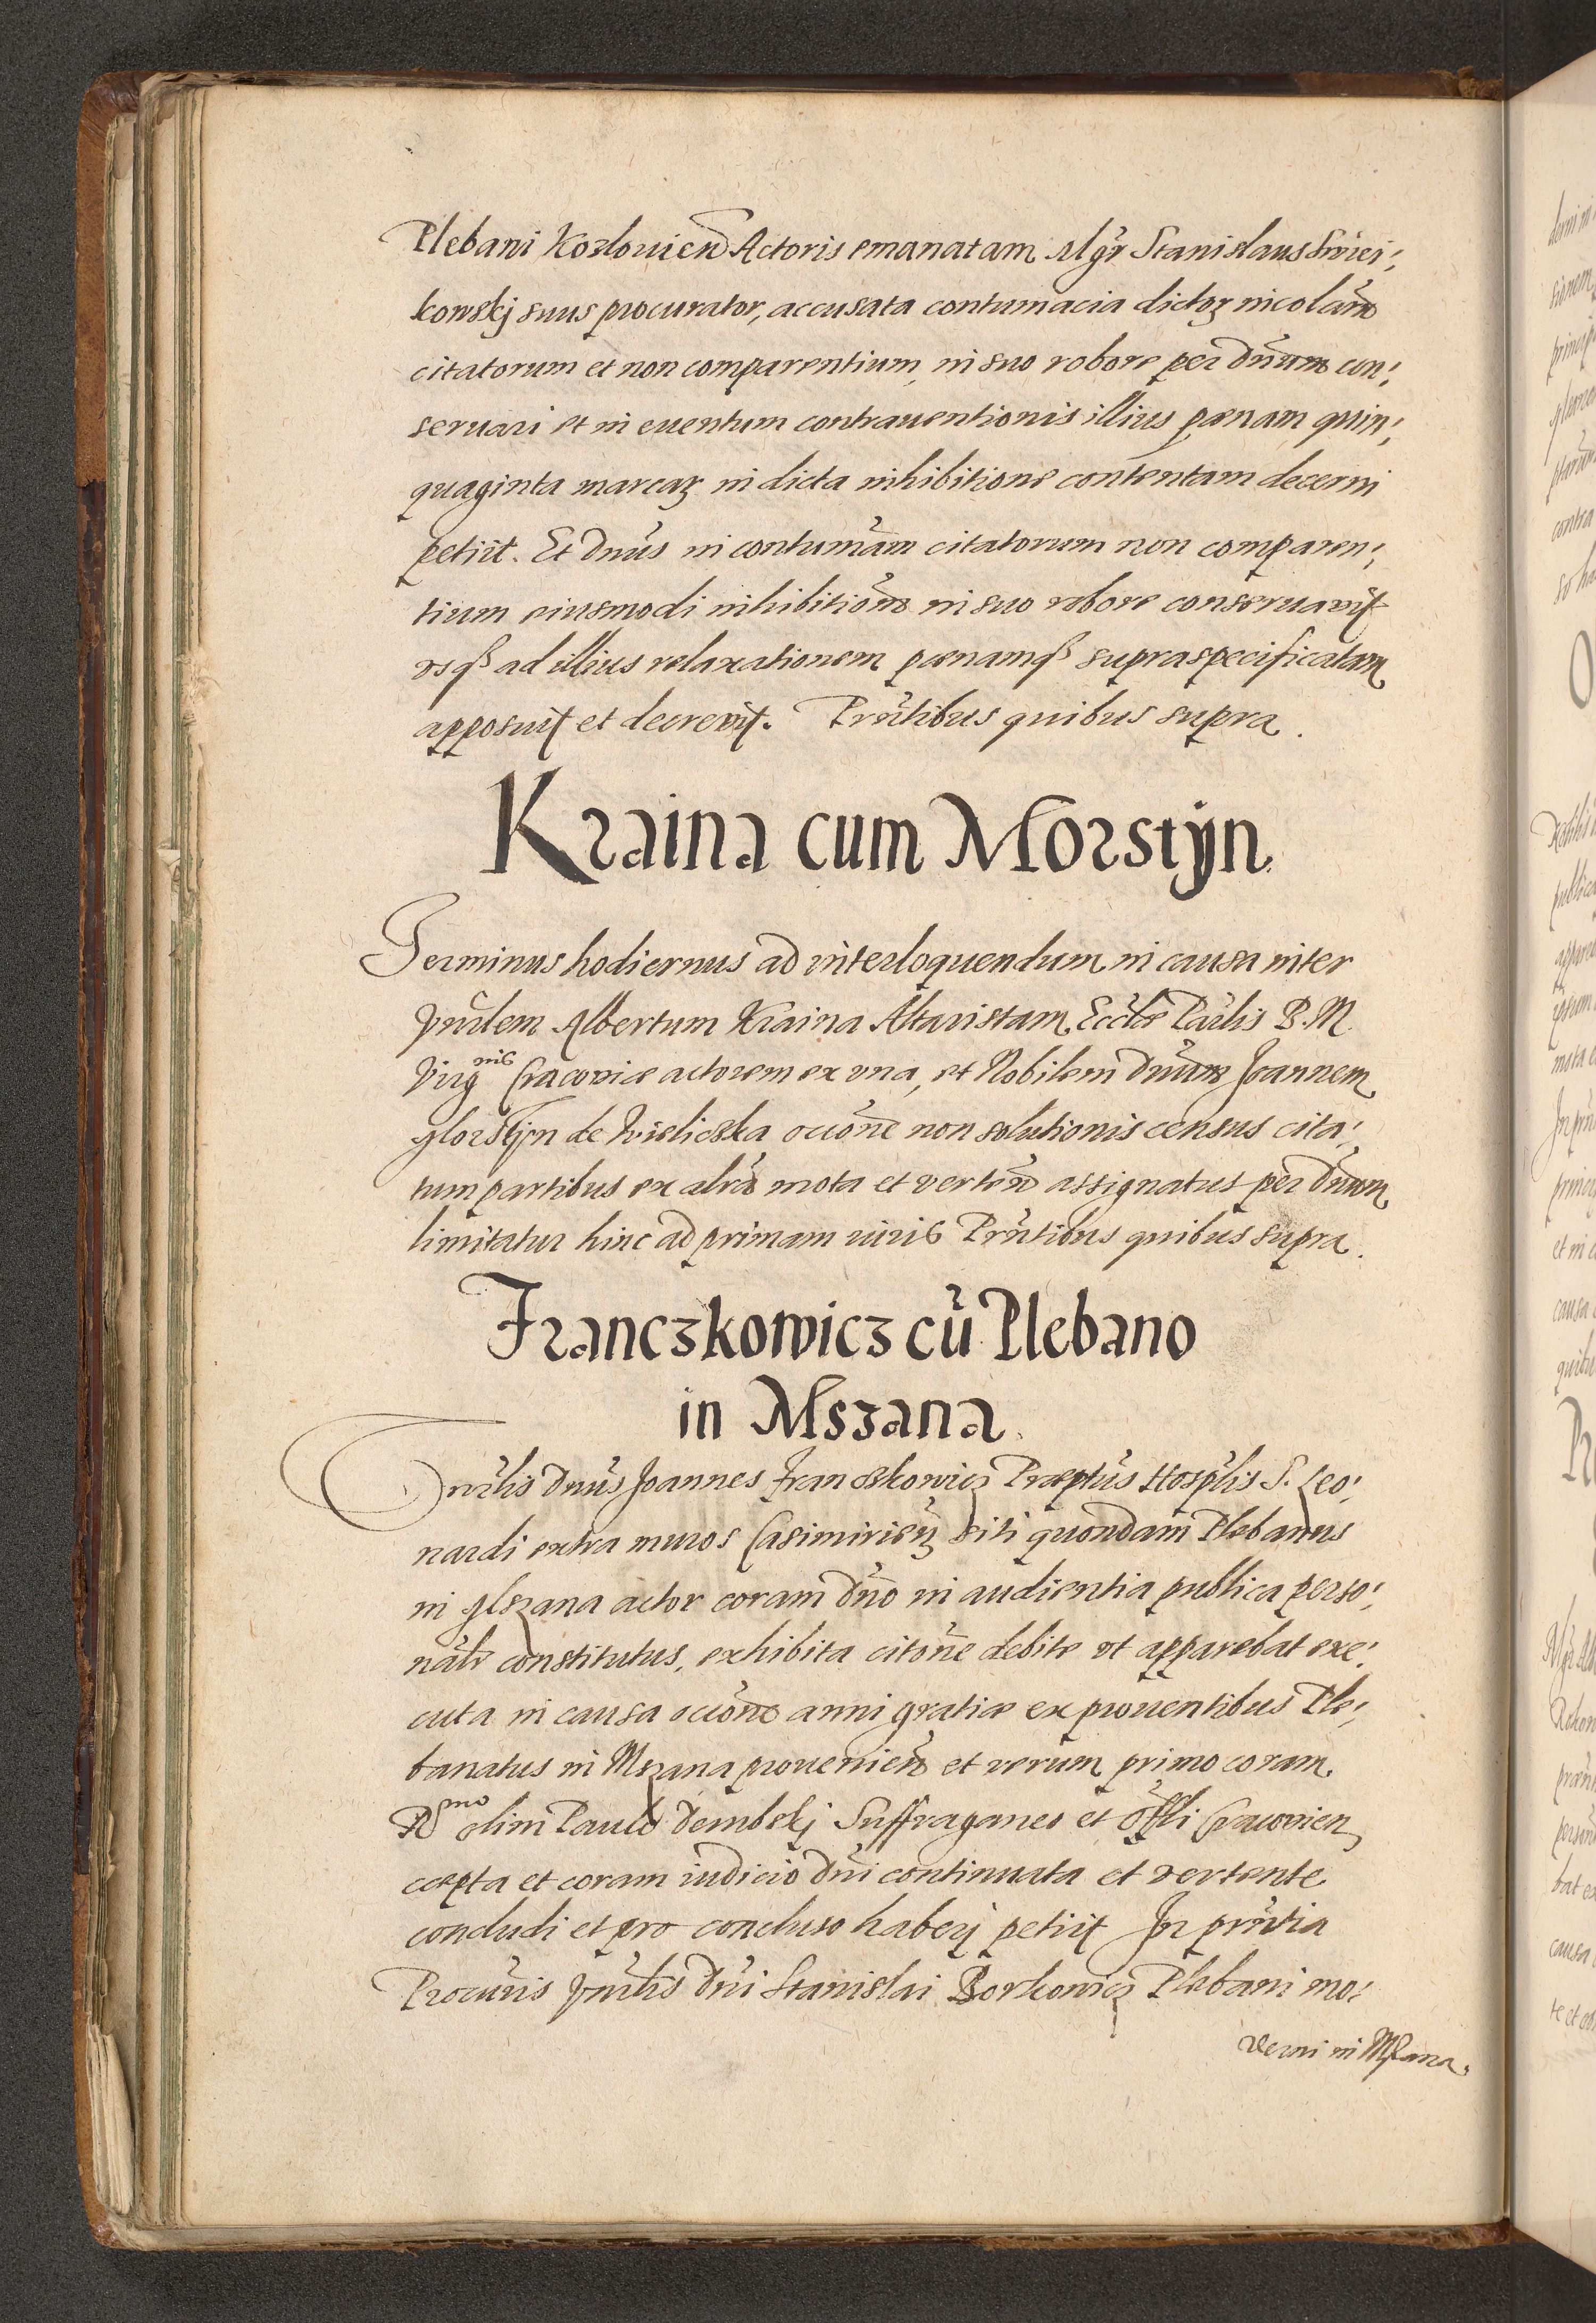 Plebani Kozlouien Actoris emanatam Mgr Stanislaus Swiei:
kowskj suus procurator, accusata contumacia dictoꝝ incolarũ
citatorum et non comparentium, in suo robore per Dñum con:
seruari et in euentum contrauentionis illius pœnam quin:
quaginta marcaꝝ in dicta inhibitione contentam decerni
petiit. Et Dñus in contumãm citatorum non comparen:
tium eiusmodi inhibitiõne in suo robore conseruauit
vsqȝ ad illius relaxationem pœnamqȝ supraspecificatam
apposuit et decrevit. Prñtibus quibus supra.
Kraina cum Morstyn.
Terminus hodiernus ad interloquendum in causa inter
Vnrlem Albertum Kraina Altaristam Eccłæ Parlis B. M.
Virgnis Cracoviæ actorem ex vna, et Nobilem Dñum Joannem
Morstyn de Wieliczka occõne non solutionis census cita:
tum partibus ex altrã mota et verteñ assignatus per Dñum
limitatur hinc ad primam iuris Prñtibus quibus supra.
Franczkowicz cũ Plebano
in Mszana.
Vnrlis Dñus Joannes Franczkowicz Præptus Hosplis S. Leo:
nardi extra muros Casimirieñ siti quondam Plebanus
in Mszana actor coram Dño in audientia publica perso:
nalr constitutus, exhibita citõne debite vt apparebat exe:
cuta in causa occõne anni gratiæ ex prouentibus Ple:
banatus in Mszana prouenieñ et rerum primo coram
Rdmo olim Paulo Dembskj Suffraganeo et Offli Cracovien
cœpta et coram iudicio Dñi continuata et vertente
concludi et pro concluso haberj petiit In prñtia
Procuris Vnrlis Dñi Stanislai Borkowicz Plebani mo:
derni in Mszana.